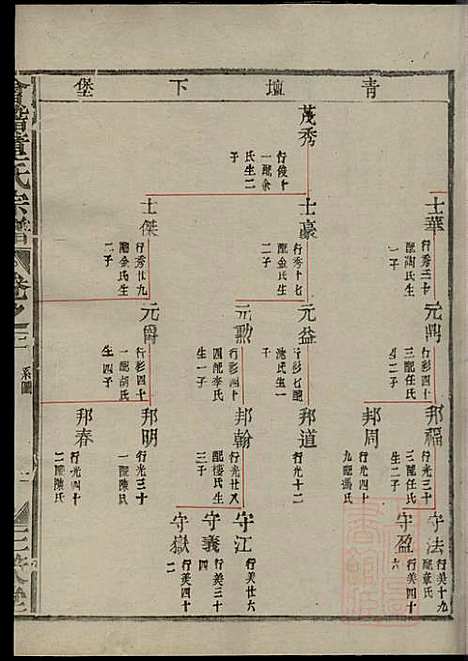 青壇下堡
茂秀
行俊十
一配余
氏生二
子
士華
行秀三十
配陶氏生
一子
士豪
行秀十七
配金氏生
二子
士傑
行秀廿九
配金氏生
二子
元鼎
行彭四十
三配任氏
生二子
元益
行彭七配
沈氏生一
子
元勲
行彭四十
四配李氏
生一子
元爵
行彭四十
一配胡氏
生四子
邦福
行光三十
三配任氏
生二子
邦周
行光四十
九配馮氏
邦道
行光十二
邦翰
行光廿八
配樓氏生
三子
邦明
行光三十
一配陳氏
邦春
行光四十
二配陳氏
守法
行美十九
配章氏
守盈
行美四十
六
守江
行美廿六
守義
行美三十
四
守嶽
行美四十
二
會稽董氏宗譜
卷之三
系圖